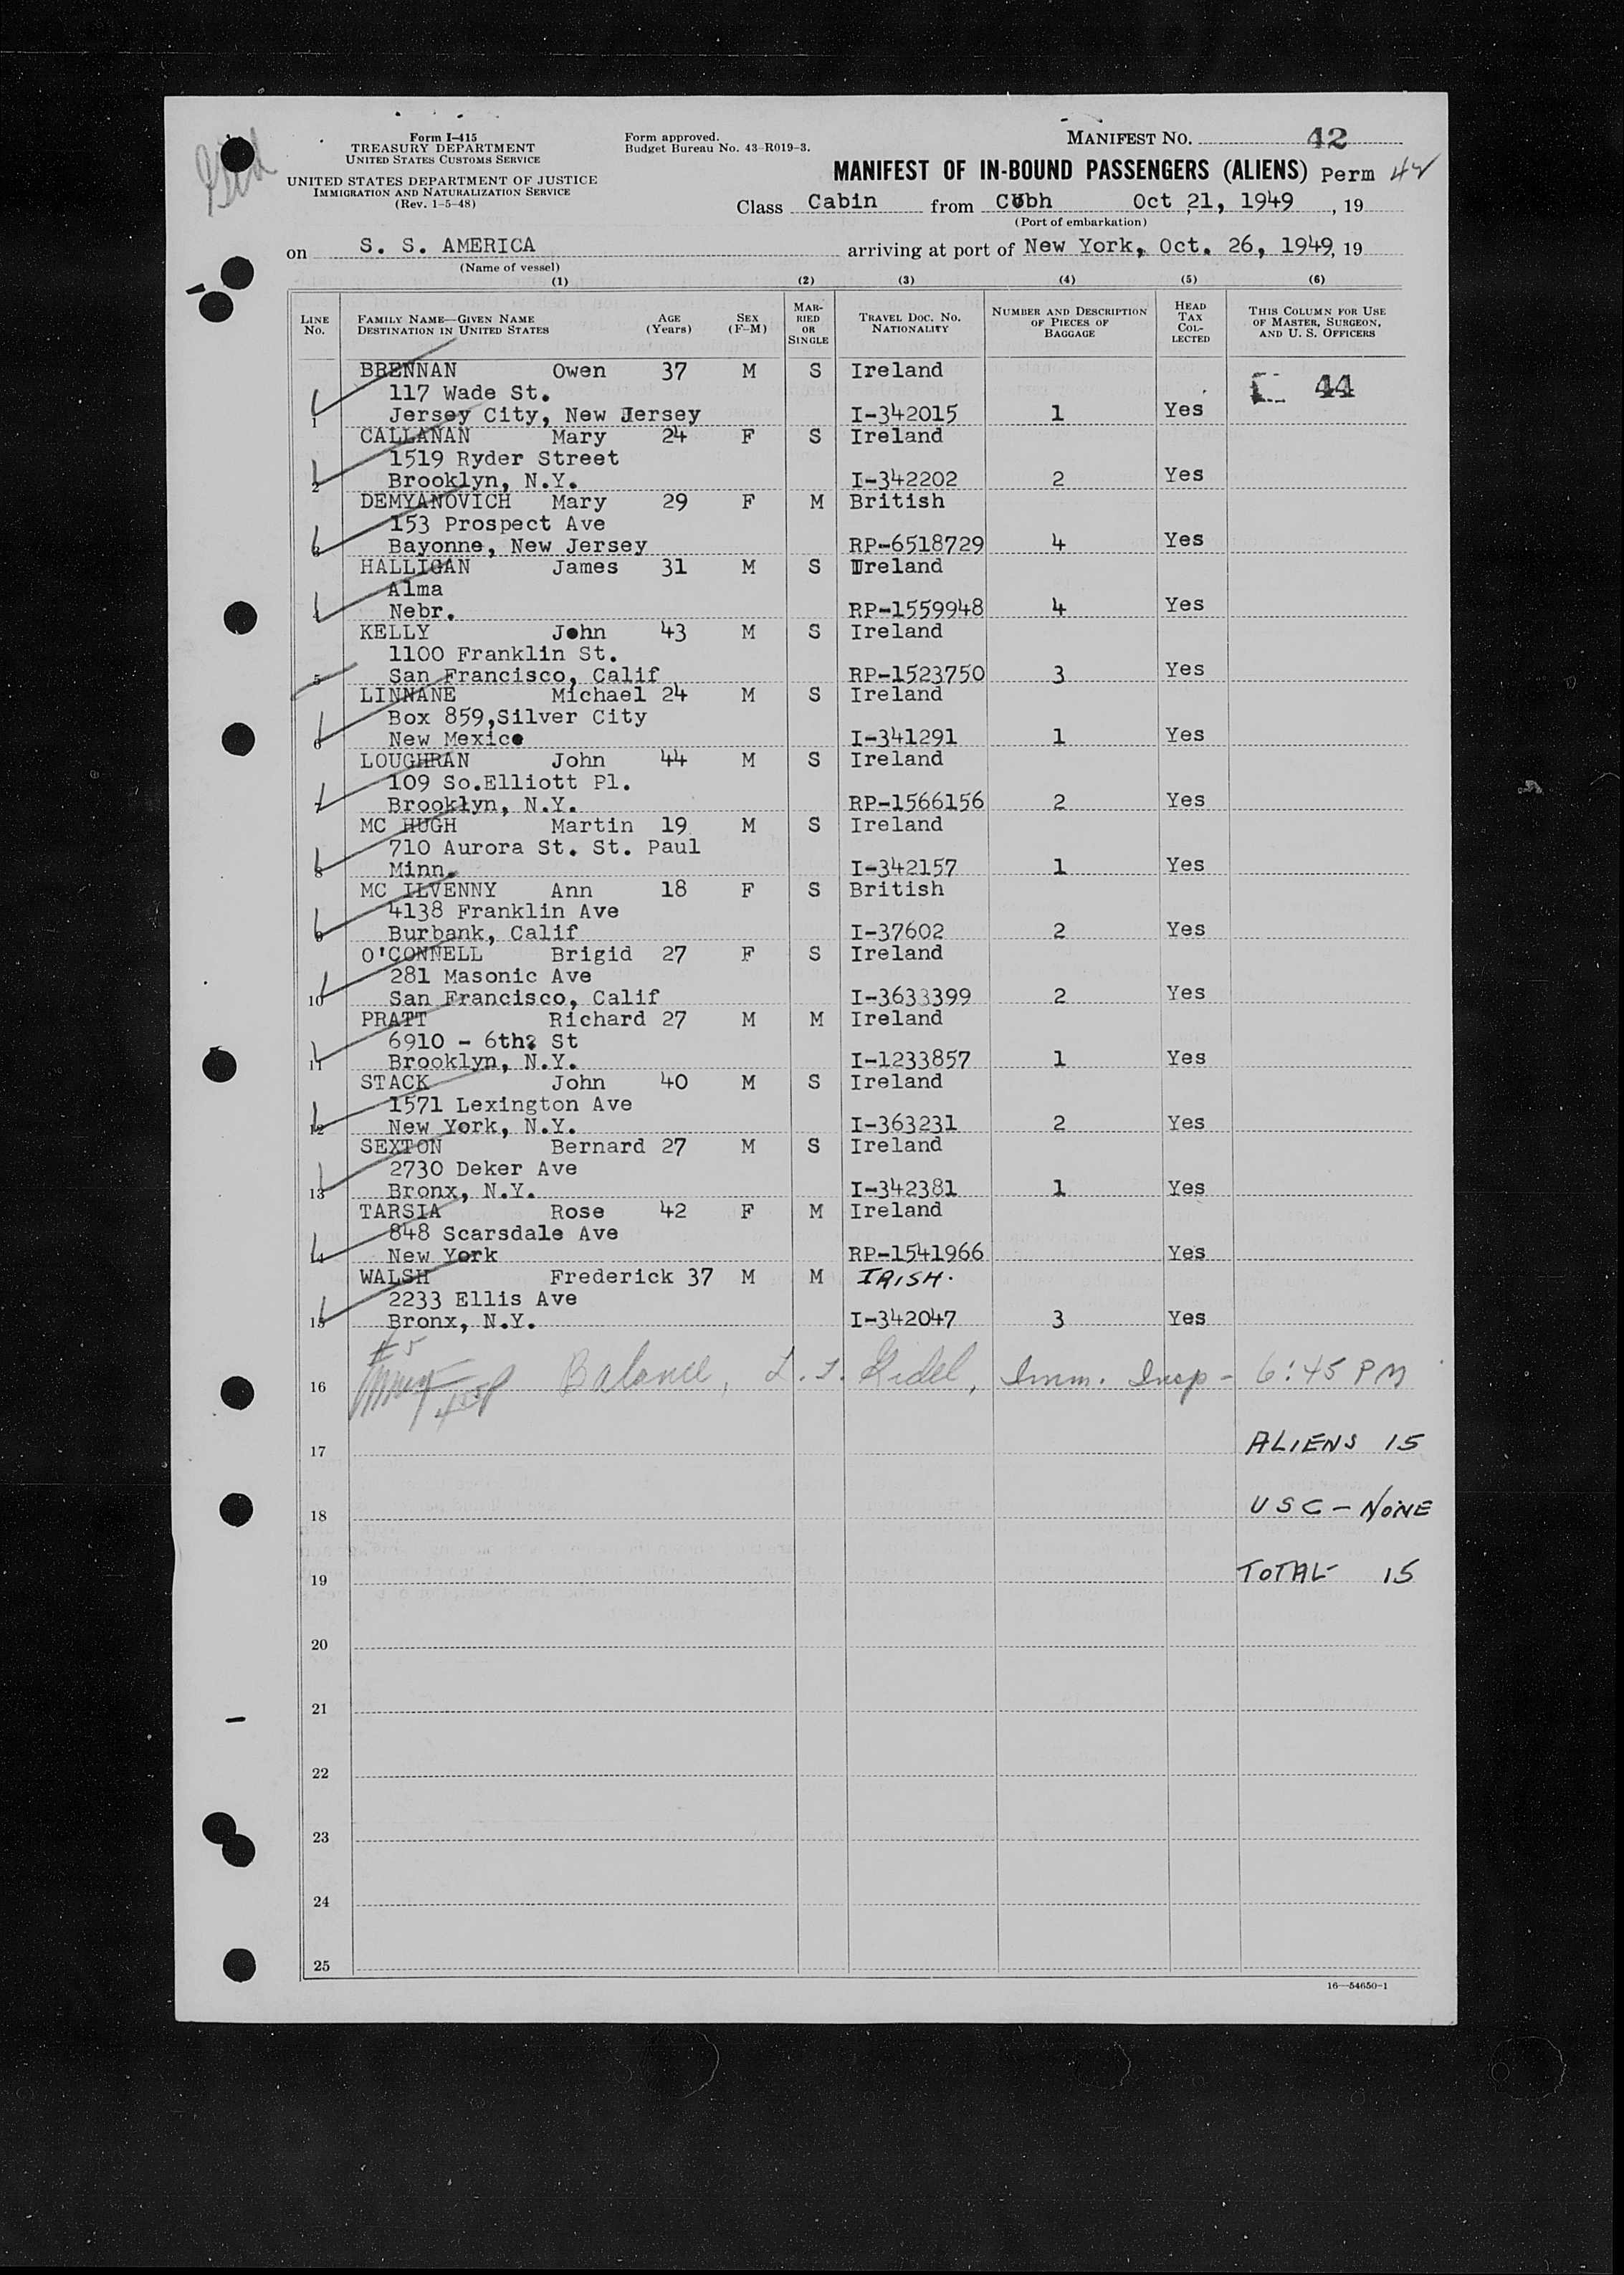 Form I-415
TREASURY DEPARTMENT
UNITED STATES CUSTOMS SERVICE
UNITED STATES DEPARTMENT OF JUSTICE
IMMIGRATION AND NATURALIZATION SERVICE
(Rev. 1-5-48)
Form approved.
Budget Bureau No. 43-R019-3.
MANIFEST NO. 42
MANIFEST OF IN-BOUND PASSENGERS (ALIENS) Perm 42
Class Cabin from Cobh Oct 21, 1949, 19
(Port of embarkation)
on S. S. AMERICA arriving at port of New York, Oct. 26, 1949, 19
(Name of vessel)
(1) (2) (3) (4) (5) (6)
LINE No. FAMILY NAME—GIVEN NAME DESTINATION IN UNITED STATES AGE (Years) SEX (F-M) MARRIED OR SINGLE TRAVEL DOC. NO. NATIONALITY NUMBER AND DESCRIPTION OF PIECES OF BAGGAGE HEAD TAX COLLECTED THIS COLUMN FOR USE OF MASTER, SURGEON, AND U. S. OFFICERS
BRENNAN Owen 37 M S Ireland
117 Wade St. 44
1 Jersey City, New Jersey I-342015 1 Yes
CALLANAN Mary 24 F S Ireland
1519 Ryder Street
2 Brooklyn, N.Y. I-342202 2 Yes
DEMYANOVICH Mary 29 F M British
153 Prospect Ave
3 Bayonne, New Jersey RP-6518729 4 Yes
HALLIGAN James 31 M S Ireland
Alma
4 Nebr. RP-1559948 4 Yes
KELLY John 43 M S Ireland
1100 Franklin St.
5 San Francisco, Calif RP-1523750 3 Yes
LINNANE Michael 24 M S Ireland
Box 859,Silver City
6 New Mexico I-341291 1 Yes
LOUGHRAN John 44 M S Ireland
109 So.Elliott Pl.
7 Brooklyn, N.Y. RP-1566156 2 Yes
MC HUGH Martin 19 M S Ireland
710 Aurora St. St. Paul
8 Minn. I-342157 1 Yes
MC ILVENNY Ann 18 F S British
4138 Franklin Ave
9 Burbank, Calif I-37602 2 Yes
O'CONNELL Brigid 27 F S Ireland
281 Masonic Ave
10 San Francisco, Calif I-3633399 2 Yes
PRATT Richard 27 M M Ireland
6910 - 6th? St
11 Brooklyn, N.Y. I-1233857 1 Yes
STACK John 40 M S Ireland
1571 Lexington Ave
12 New York, N.Y. I-363231 2 Yes
SEXTON Bernard 27 M S Ireland
2730 Deker Ave
13 Bronx, N.Y. I-342381 1 Yes
TARSIA Rose 42 F M Ireland
848 Scarsdale Ave
14 New York RP-1541966 Yes
WALSH Frederick 37 M M IRISH.
2233 Ellis Ave
15 Bronx, N.Y. I-342047 3 Yes
#5
16 Balance, Imm. Insp - 6:45 PM
17 ALIENS 15
18 USC - NONE
19 TOTAL 15
20
21
22
23
24
25
16—54650-1